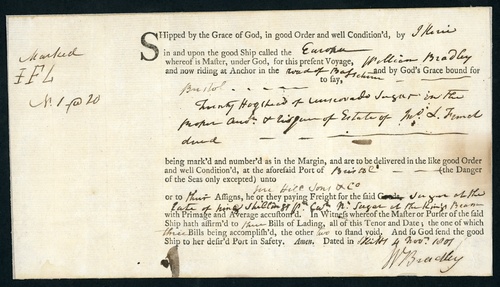 Marked
IFL
No. 1 @ 20
SHipped by the Grace of God, in good Order and well Condition'd, by
in and upon the good Ship called the Europa
whereof is Master, under God, for this present Voyage, William Bradley
and now riding at Anchor in the road of and by God's Grace bound for
Bristol to say,
Twenty Hogshead of Muscovado Sugar in the
proper and of Estate of
being mark'd and number'd as in the Margin, and are to be delivered in the like good Order
and well Condition'd, at the aforesaid Port of Bristol (the Danger
of the Seas only excepted) unto
Sons & Co
or to their Assigns, he or they paying Freight for the said Goods, Sugar at the
rate of Shillings Sugar at the Kings Beam
with Primage and Average accustom'd. In Witness whereof the Master or Purser of the said
Ship hath affirm'd to three Bills of Lading, all of this Tenor and Date; the one of which
three Bills being accomplish'd, the other two to stand void. And so God send the good
Ship to her desir'd Port in Safety. Amen. Dated in 4 Novr. 1801
Wm Bradley